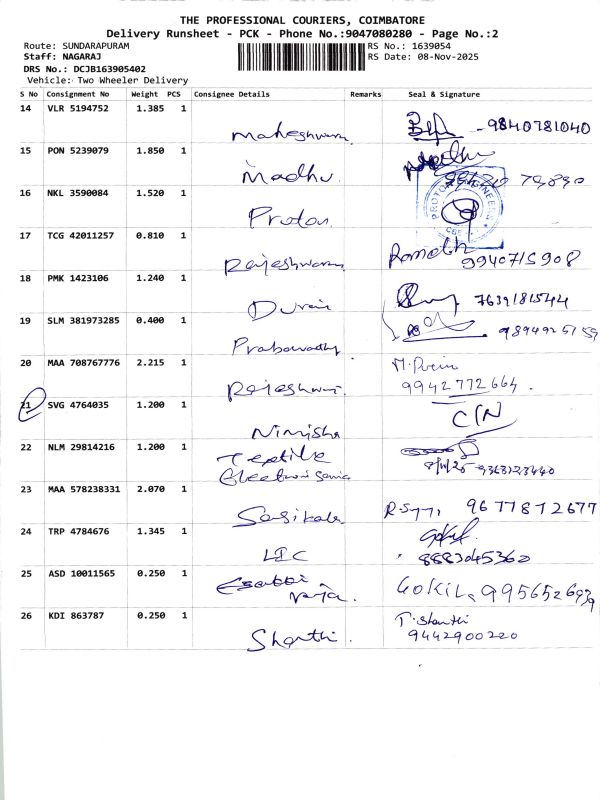 THE PROFESSIONAL COURIERS, COIMBATORE
Delivery Runsheet - PCK - Phone No.:9047080280 - Page No.:2
Route: SUNDARAPURAM RS No.: 1639054
Staff: NAGARAJ RS Date: 08-Nov-2025
DRS No.: DCJB163905402
Vehicle: Two Wheeler Delivery
S No Consignment No Weight PCS Consignee Details Remarks Seal & Signature
14 VLR 5194752 1.385 1
Maheshwari - 9840781040
15 PON 5239079 1.850 1
Madhu
16 NKL 3590084 1.520 1
Proton
17 TCG 42011257 0.810 1
Rajeshwari Ramesh
9940715908
18 PMK 1423106 1.240 1
Durai 7639181544
19 SLM 381973285 0.400 1
Prabavathy
20 MAA 708767776 2.215 1
Rajeshwari
9942772664
21 SVG 4764035 1.200 1
Nimisha C/N
22 NLM 29814216 1.200 1
Textile
8/11/25
23 MAA 578238331 2.070 1
Sasikala 9677812677
24 TRP 4784676 1.345 1
LIC 8883045360
25 ASD 10011565 0.250 1
Raja GOKILA
26 KDI 863787 0.250 1
Shanthi T. Shanthi
9442900220